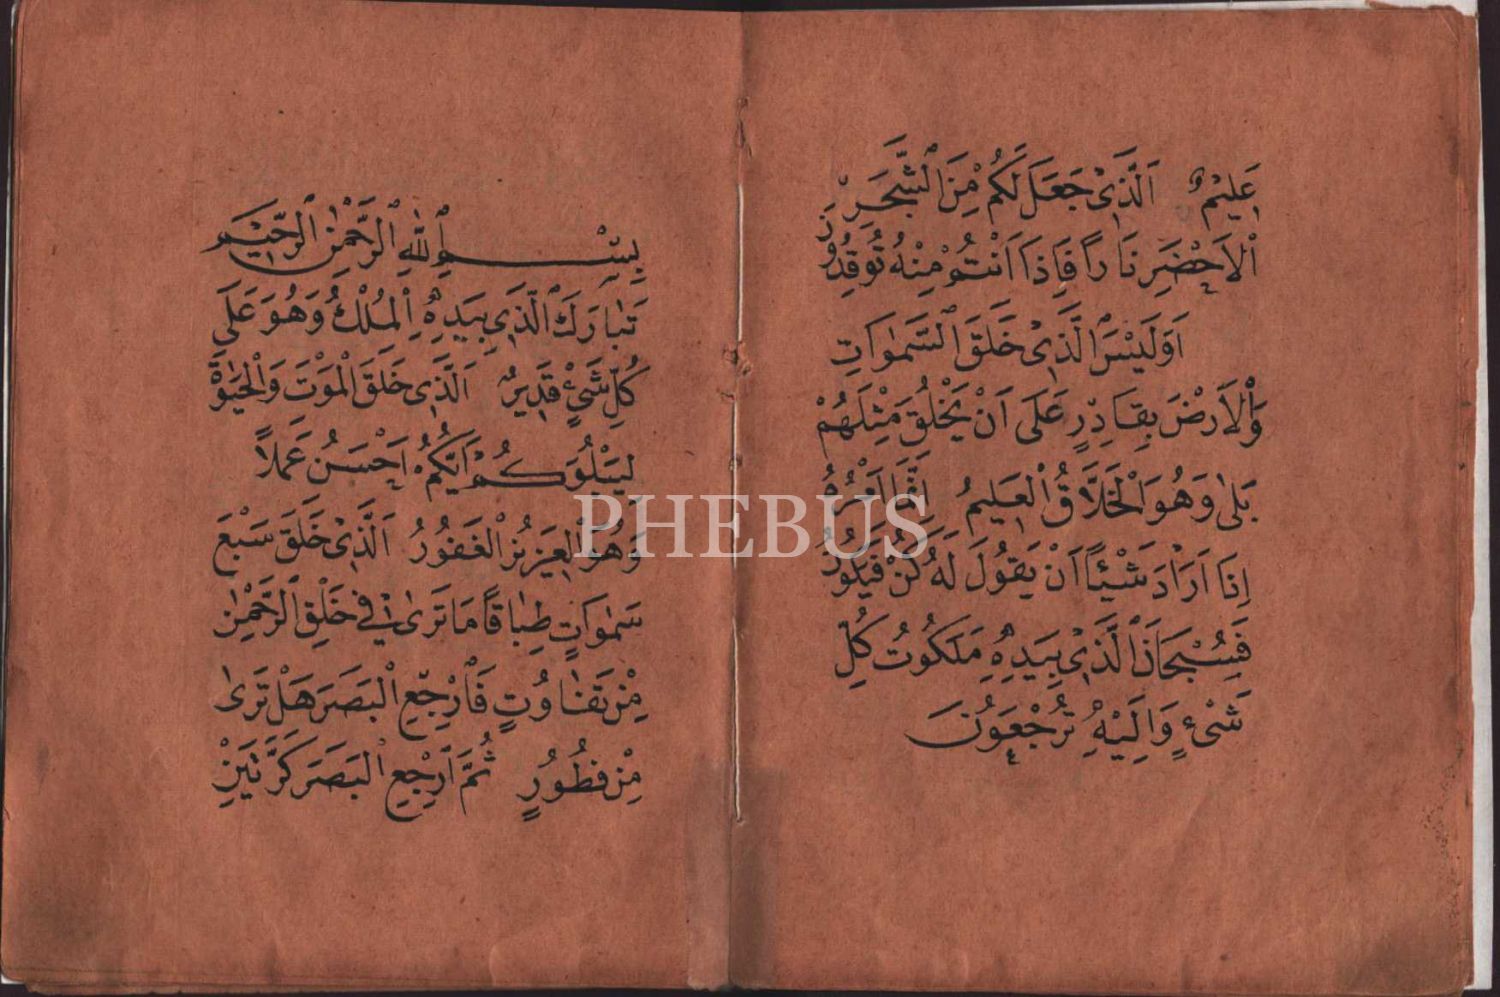 عَلِيمٌ اَلَّذِى جَعَلَ لَكُمْ مِنَ الشَّجَرِ
الْاَخْضَرِ نَارًا فَاِذَا اَنْتُمْ مِنْهُ تُوقِدُونَ
اَوَلَيْسَ الَّذِى خَلَقَ السَّمٰوَاتِ
وَالْاَرْضَ بِقَادِرٍ عَلٰى اَنْ يَخْلُقَ مِثْلَهُمْ
بَلٰى وَهُوَ الْخَلَّاقُ الْعَلِيمُ اِنَّمَا اَمْرُهُ
اِذَا اَرَادَ شَيْئًا اَنْ يَقُولَ لَهُ كُنْ فَيَكُونُ
فَسُبْحَانَ الَّذِى بِيَدِهِ مَلَكُوتُ كُلِّ
شَىْءٍ وَاِلَيْهِ تُرْجَعُونَ
بِسْمِ اللّٰهِ الرَّحْمٰنِ الرَّحِيمِ
تَبَارَكَ الَّذِى بِيَدِهِ الْمُلْكُ وَهُوَ عَلٰى
كُلِّ شَىْءٍ قَدِيرٌ اَلَّذِى خَلَقَ الْمَوْتَ وَالْحَيٰوةَ
لِيَبْلُوَكُمْ اَيُّكُمْ اَحْسَنُ عَمَلًا
وَهُوَ الْعَزِيزُ الْغَفُورُ اَلَّذِى خَلَقَ سَبْعَ
سَمٰوَاتٍ طِبَاقًا مَا تَرٰى فِى خَلْقِ الرَّحْمٰنِ
مِنْ تَفَاوُتٍ فَارْجِعِ الْبَصَرَ هَلْ تَرٰى
مِنْ فُطُورٍ ثُمَّ ارْجِعِ الْبَصَرَ كَرَّتَيْنِ
PHEBUS